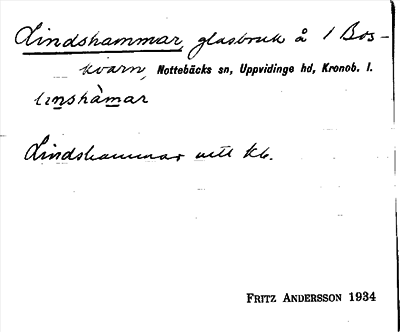 Lindshammar, glasbruk å 1 Bos-
kvarn, Nottebäcks sn, Uppvidinge hd, Kronob. l.
linshàmar
Lindshammar utt kb.
FRITZ ANDERSSON 1934